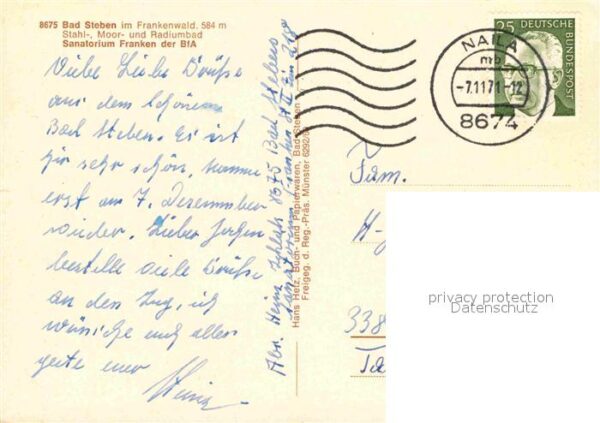 8675 Bad Steben im Frankenwald. 584 m
Stahl-, Moor- und Radiumbad
Sanatorium Franken der BfA
Viele Liebe Grüße
aus dem schönen
Bad Steben. Es ist
hir sehr schön, komme
erst am 7. Dezember
wieder. Lieber Jürgen
bestelle viele Grüße
an den Zug, ich
wünsche euch alles
gute euer
Heinz
Abs. Heinz 8675 Bad Steben
Sanatorium Franken
Hans Hetz, Buch- und Papierwaren, Bad Steben
Freigeg. d. Reg.-Präs. Münster
25 DEUTSCHE BUNDESPOST
NAILA
mb
-7.11.71-12
8674
Fam.
H
338
privacy protection
Datenschutz